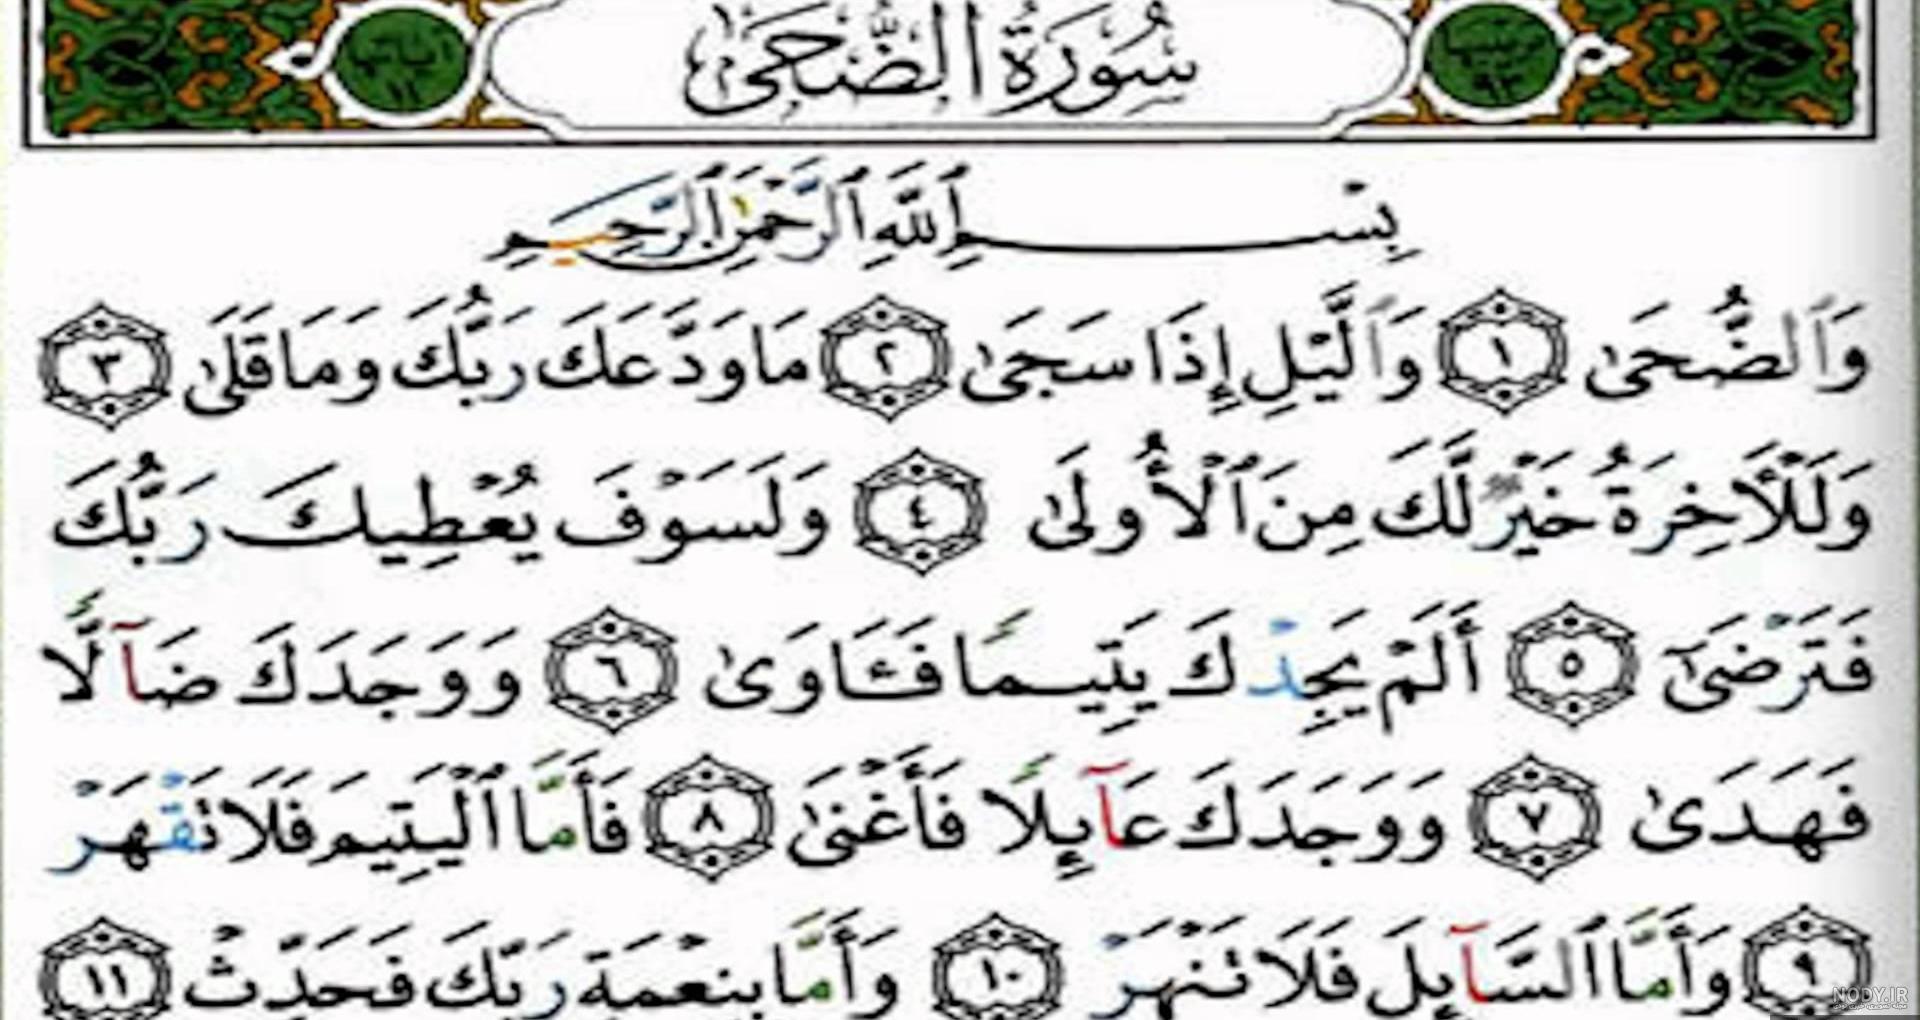 ترتيبها ٩٣
سُورَةُ الضُّحَىٰ
آياتها ١١
بِسْمِ ٱللَّهِ ٱلرَّحْمَٰنِ ٱلرَّحِيمِ
وَٱلضُّحَىٰ ١ وَٱلَّيْلِ إِذَا سَجَىٰ ٢ مَا وَدَّعَكَ رَبُّكَ وَمَا قَلَىٰ ٣
وَلَلْآخِرَةُ خَيْرٌ لَّكَ مِنَ ٱلْأُولَىٰ ٤ وَلَسَوْفَ يُعْطِيكَ رَبُّكَ
فَتَرْضَىٰٓ ٥ أَلَمْ يَجِدْكَ يَتِيمًا فَـَٔاوَىٰ ٦ وَوَجَدَكَ ضَآلًّا
فَهَدَىٰ ٧ وَوَجَدَكَ عَآئِلًا فَأَغْنَىٰ ٨ فَأَمَّا ٱلْيَتِيمَ فَلَا تَقْهَرْ
٩ وَأَمَّا ٱلسَّآئِلَ فَلَا تَنْهَرْ ١٠ وَأَمَّا بِنِعْمَةِ رَبِّكَ فَحَدِّثْ ١١
NODY.IR